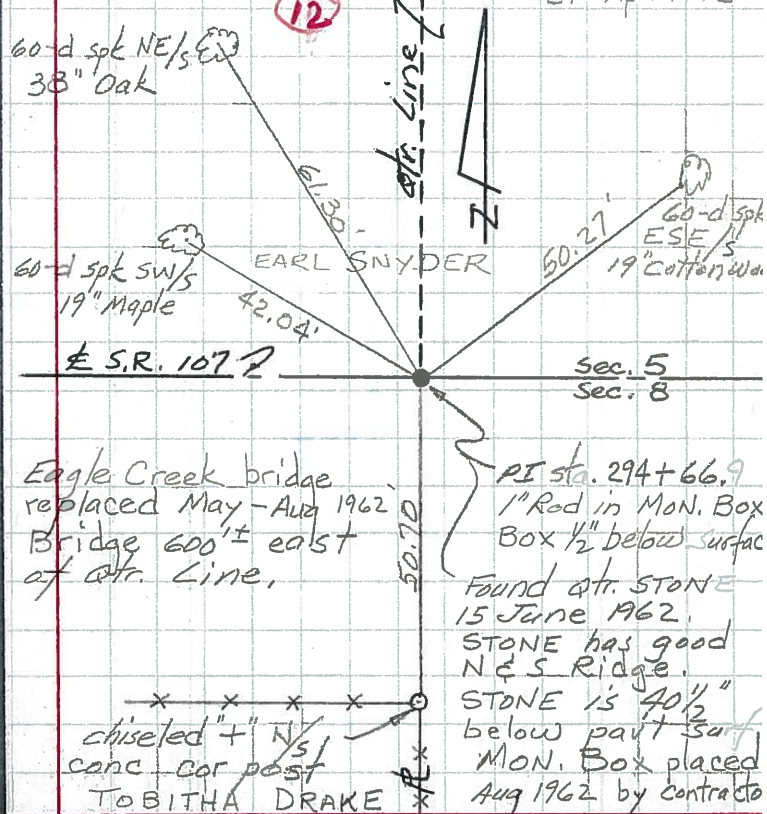 12
60-d spk NE/s
38" Oak
Qtr. Line
61.30'
N
60-d spk
ESE/s
19" Cottonwoo
50.27'
EARL SNYDER
60-d spk SW/s
19" Maple
42.04'
℄ S.R. 107
Sec. 5
Sec. 8
Eagle Creek bridge
replaced May-Aug 1962
Bridge 600'± east
of Qtr. Line.
50.70'
PI sta. 294+66.9
1" Rod in MON. Box
Box ½" below surfac
Found Qtr. STONE
15 June 1962.
STONE has good
N & S Ridge.
STONE is 40½"
below pav't surf
MON. Box placed
Aug 1962 by contracto
chiseled "+" N/s
conc cor post
TOBITHA DRAKE
PL